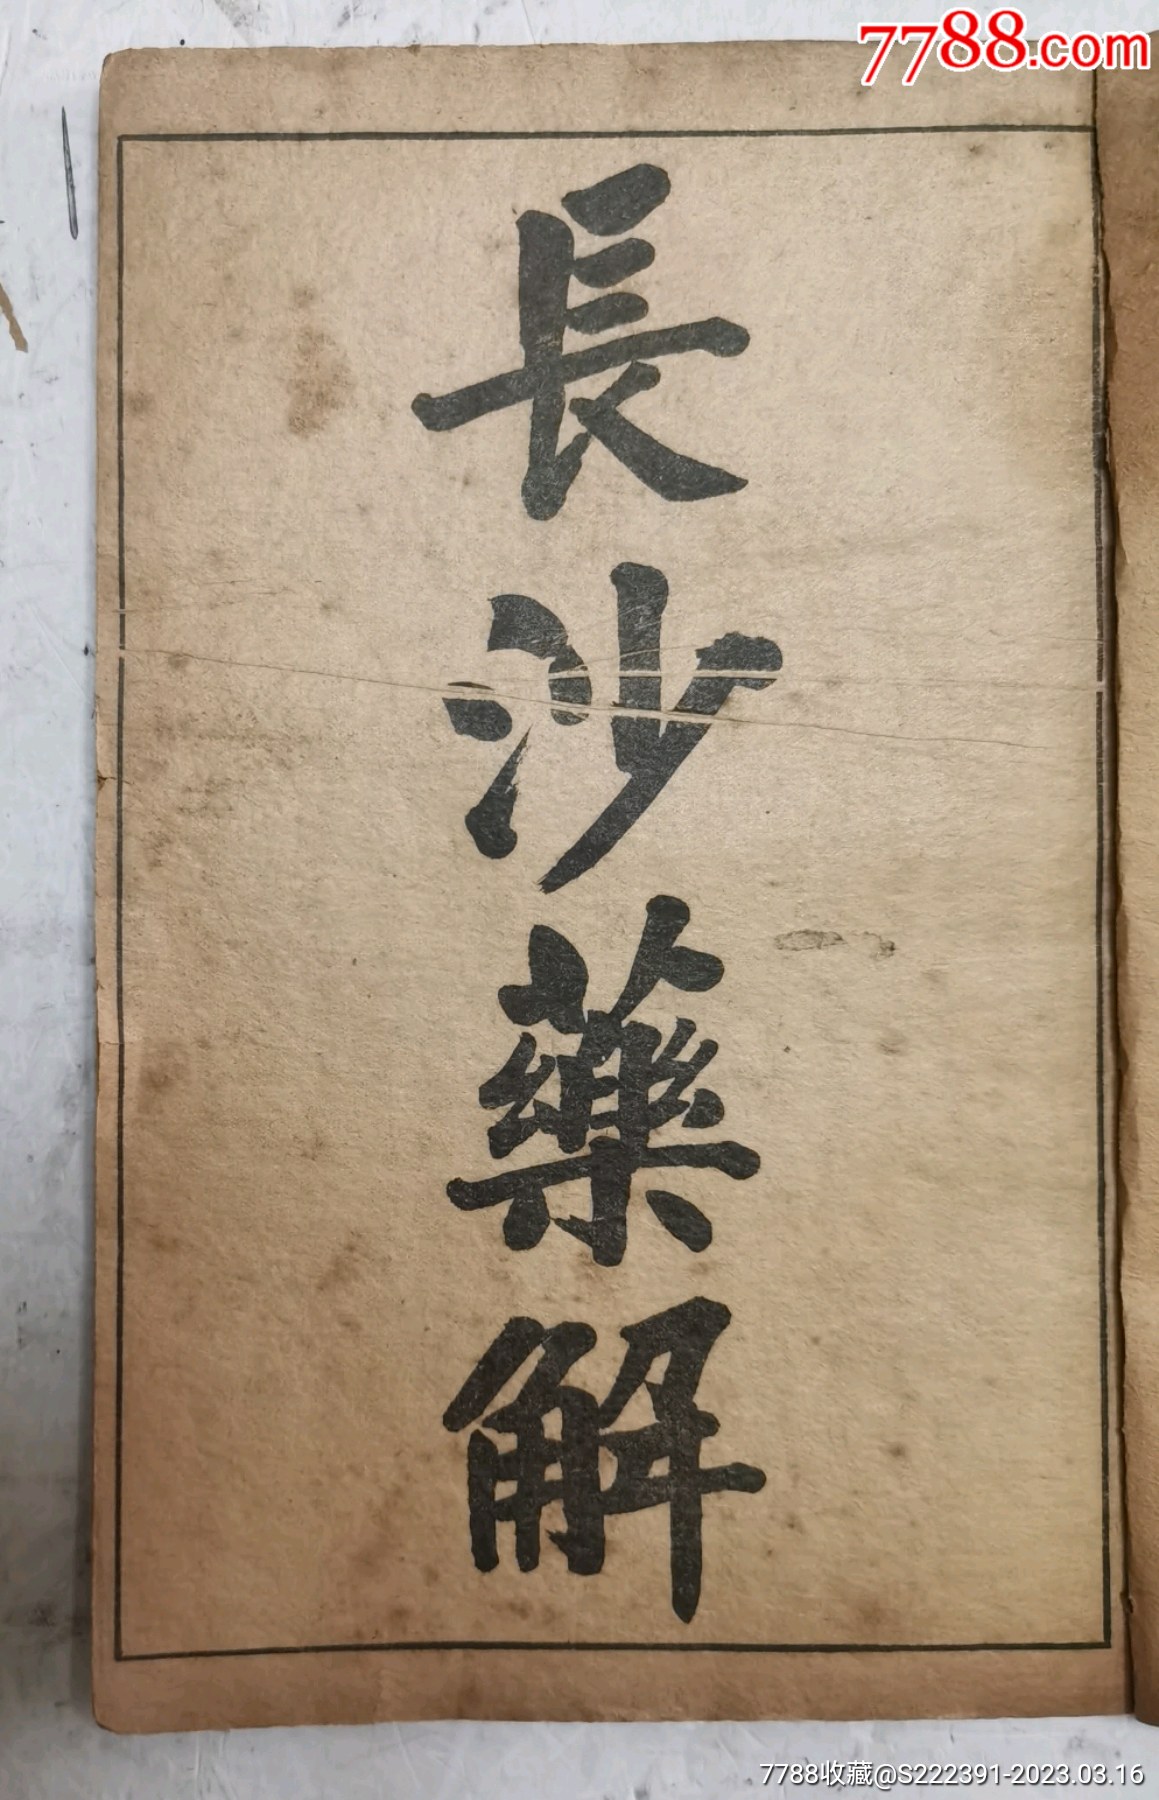 7788.com
長沙藥解
7788收藏@S222391-2023.03.16